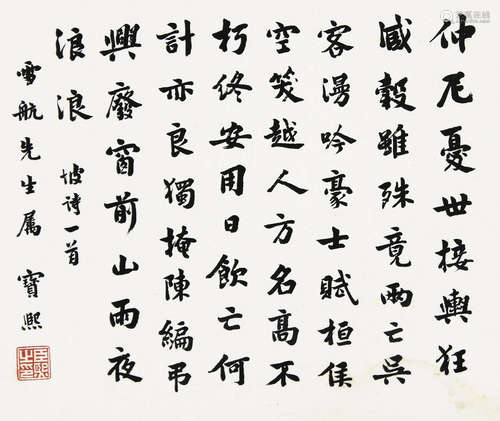 仲尼憂世接輿狂
臧穀雖殊竟兩亡吳
客漫吟豪士賦桓侯
空笑越人方名高不
朽終安用日飲亡何
計亦良獨掩陳編弔
興廢窗前山雨夜
浪浪 坡詩一首
雪航先生属 寶熙